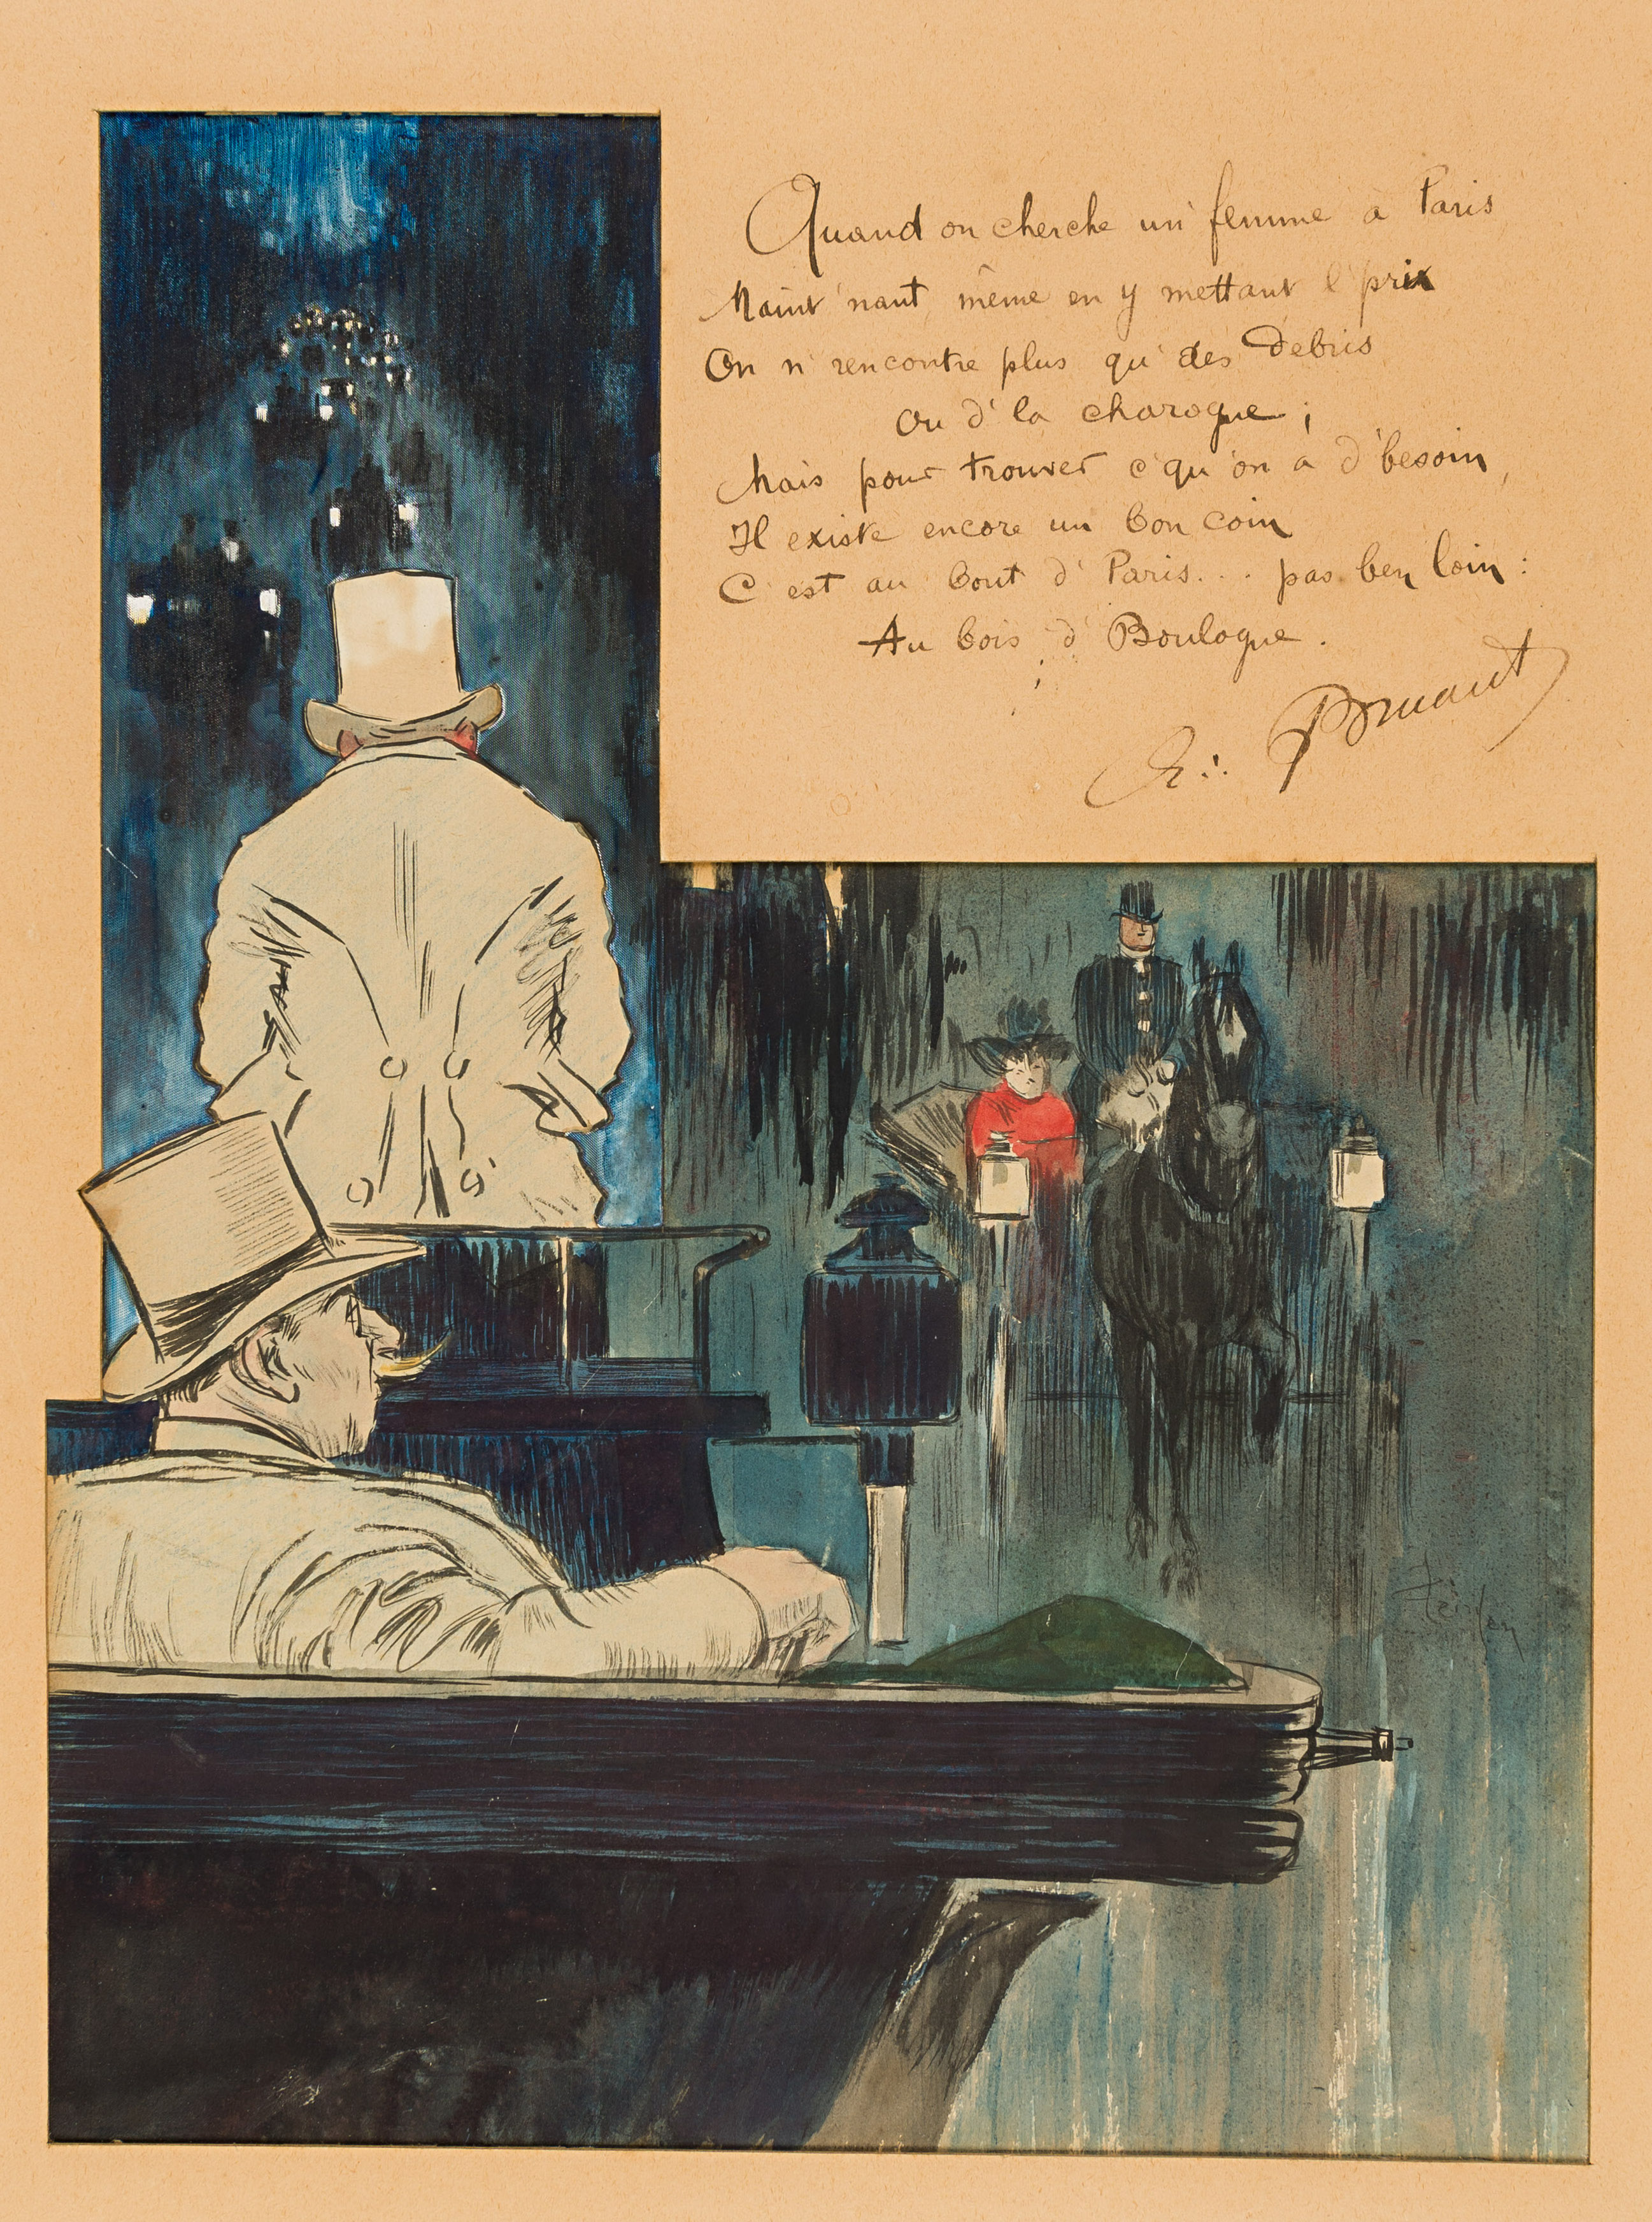 Quand on cherche un' femme à Paris
Maint'nant, même en y mettant l'prix
On n' rencontre plus qu' des débris
Ou d' la charogne ;
Mais pour trouver c'qu'on a d'besoin,
Il existe encore un bon coin
C'est au bout d' Paris... pas ben loin :
Au bois d' Boulogne.
Bruant
Steinlen